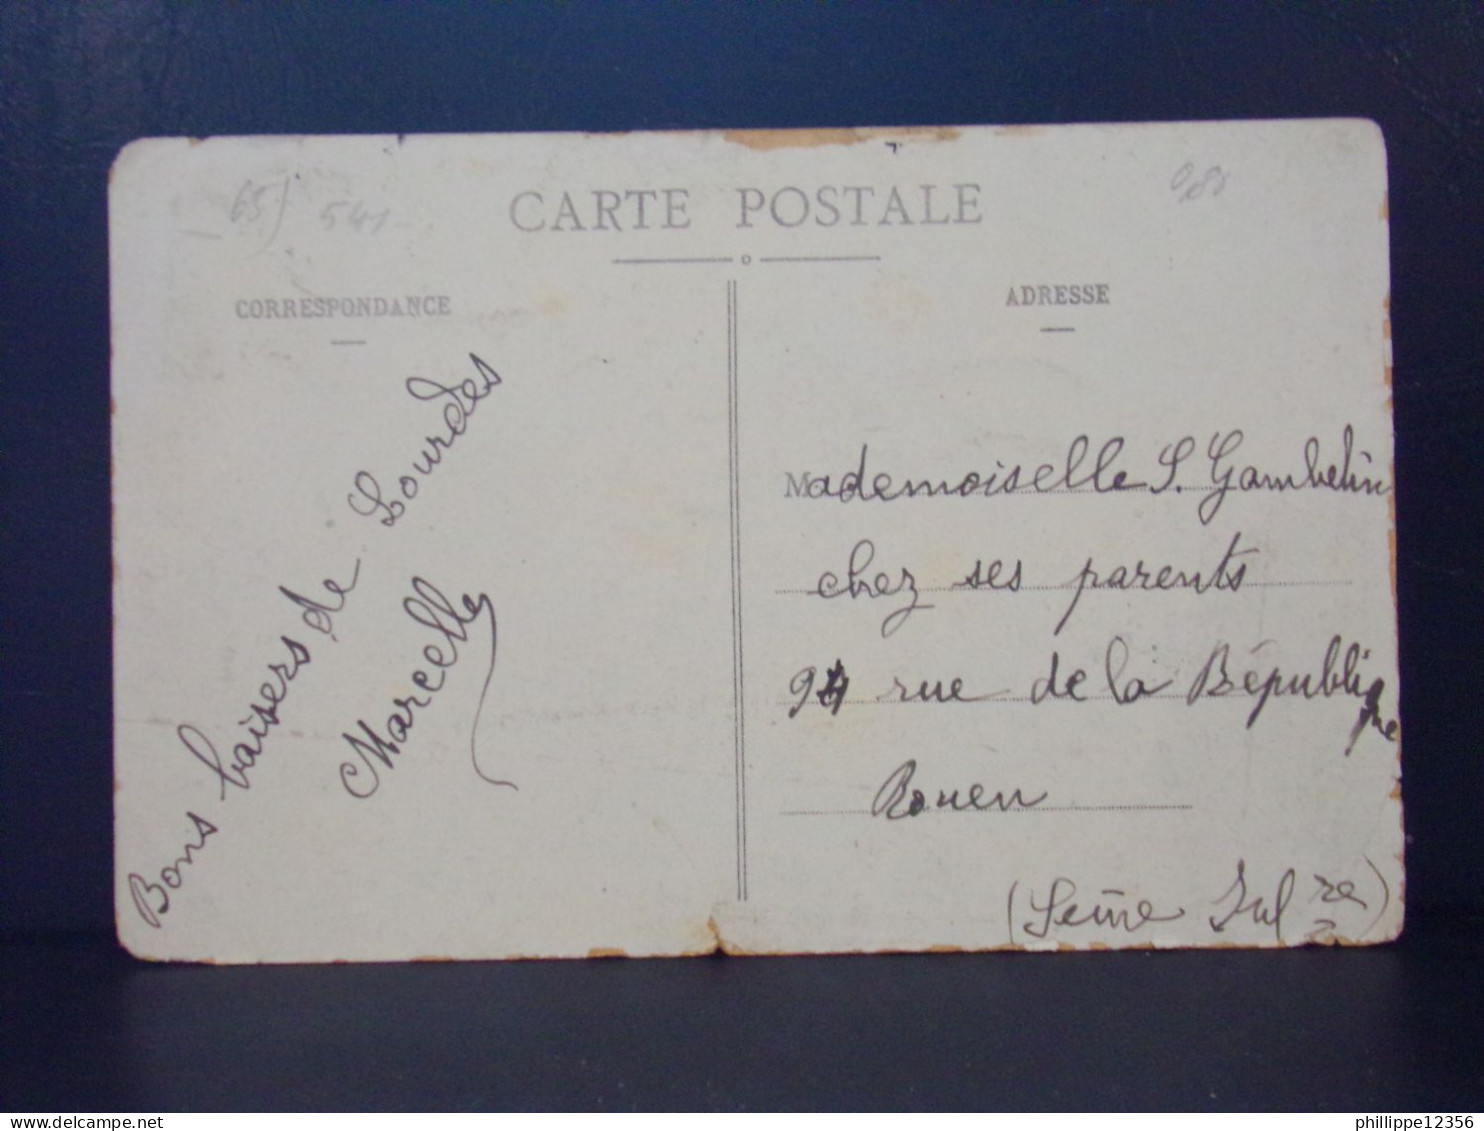 65) 541
CARTE POSTALE
CORRESPONDANCE
Bons baisers de Lourdes
Marcelle
ADRESSE
Mademoiselle S. Gambelin
chez ses parents
94 rue de la République
Rouen
(Seine Infre)
phillippe12356
delcampe.net